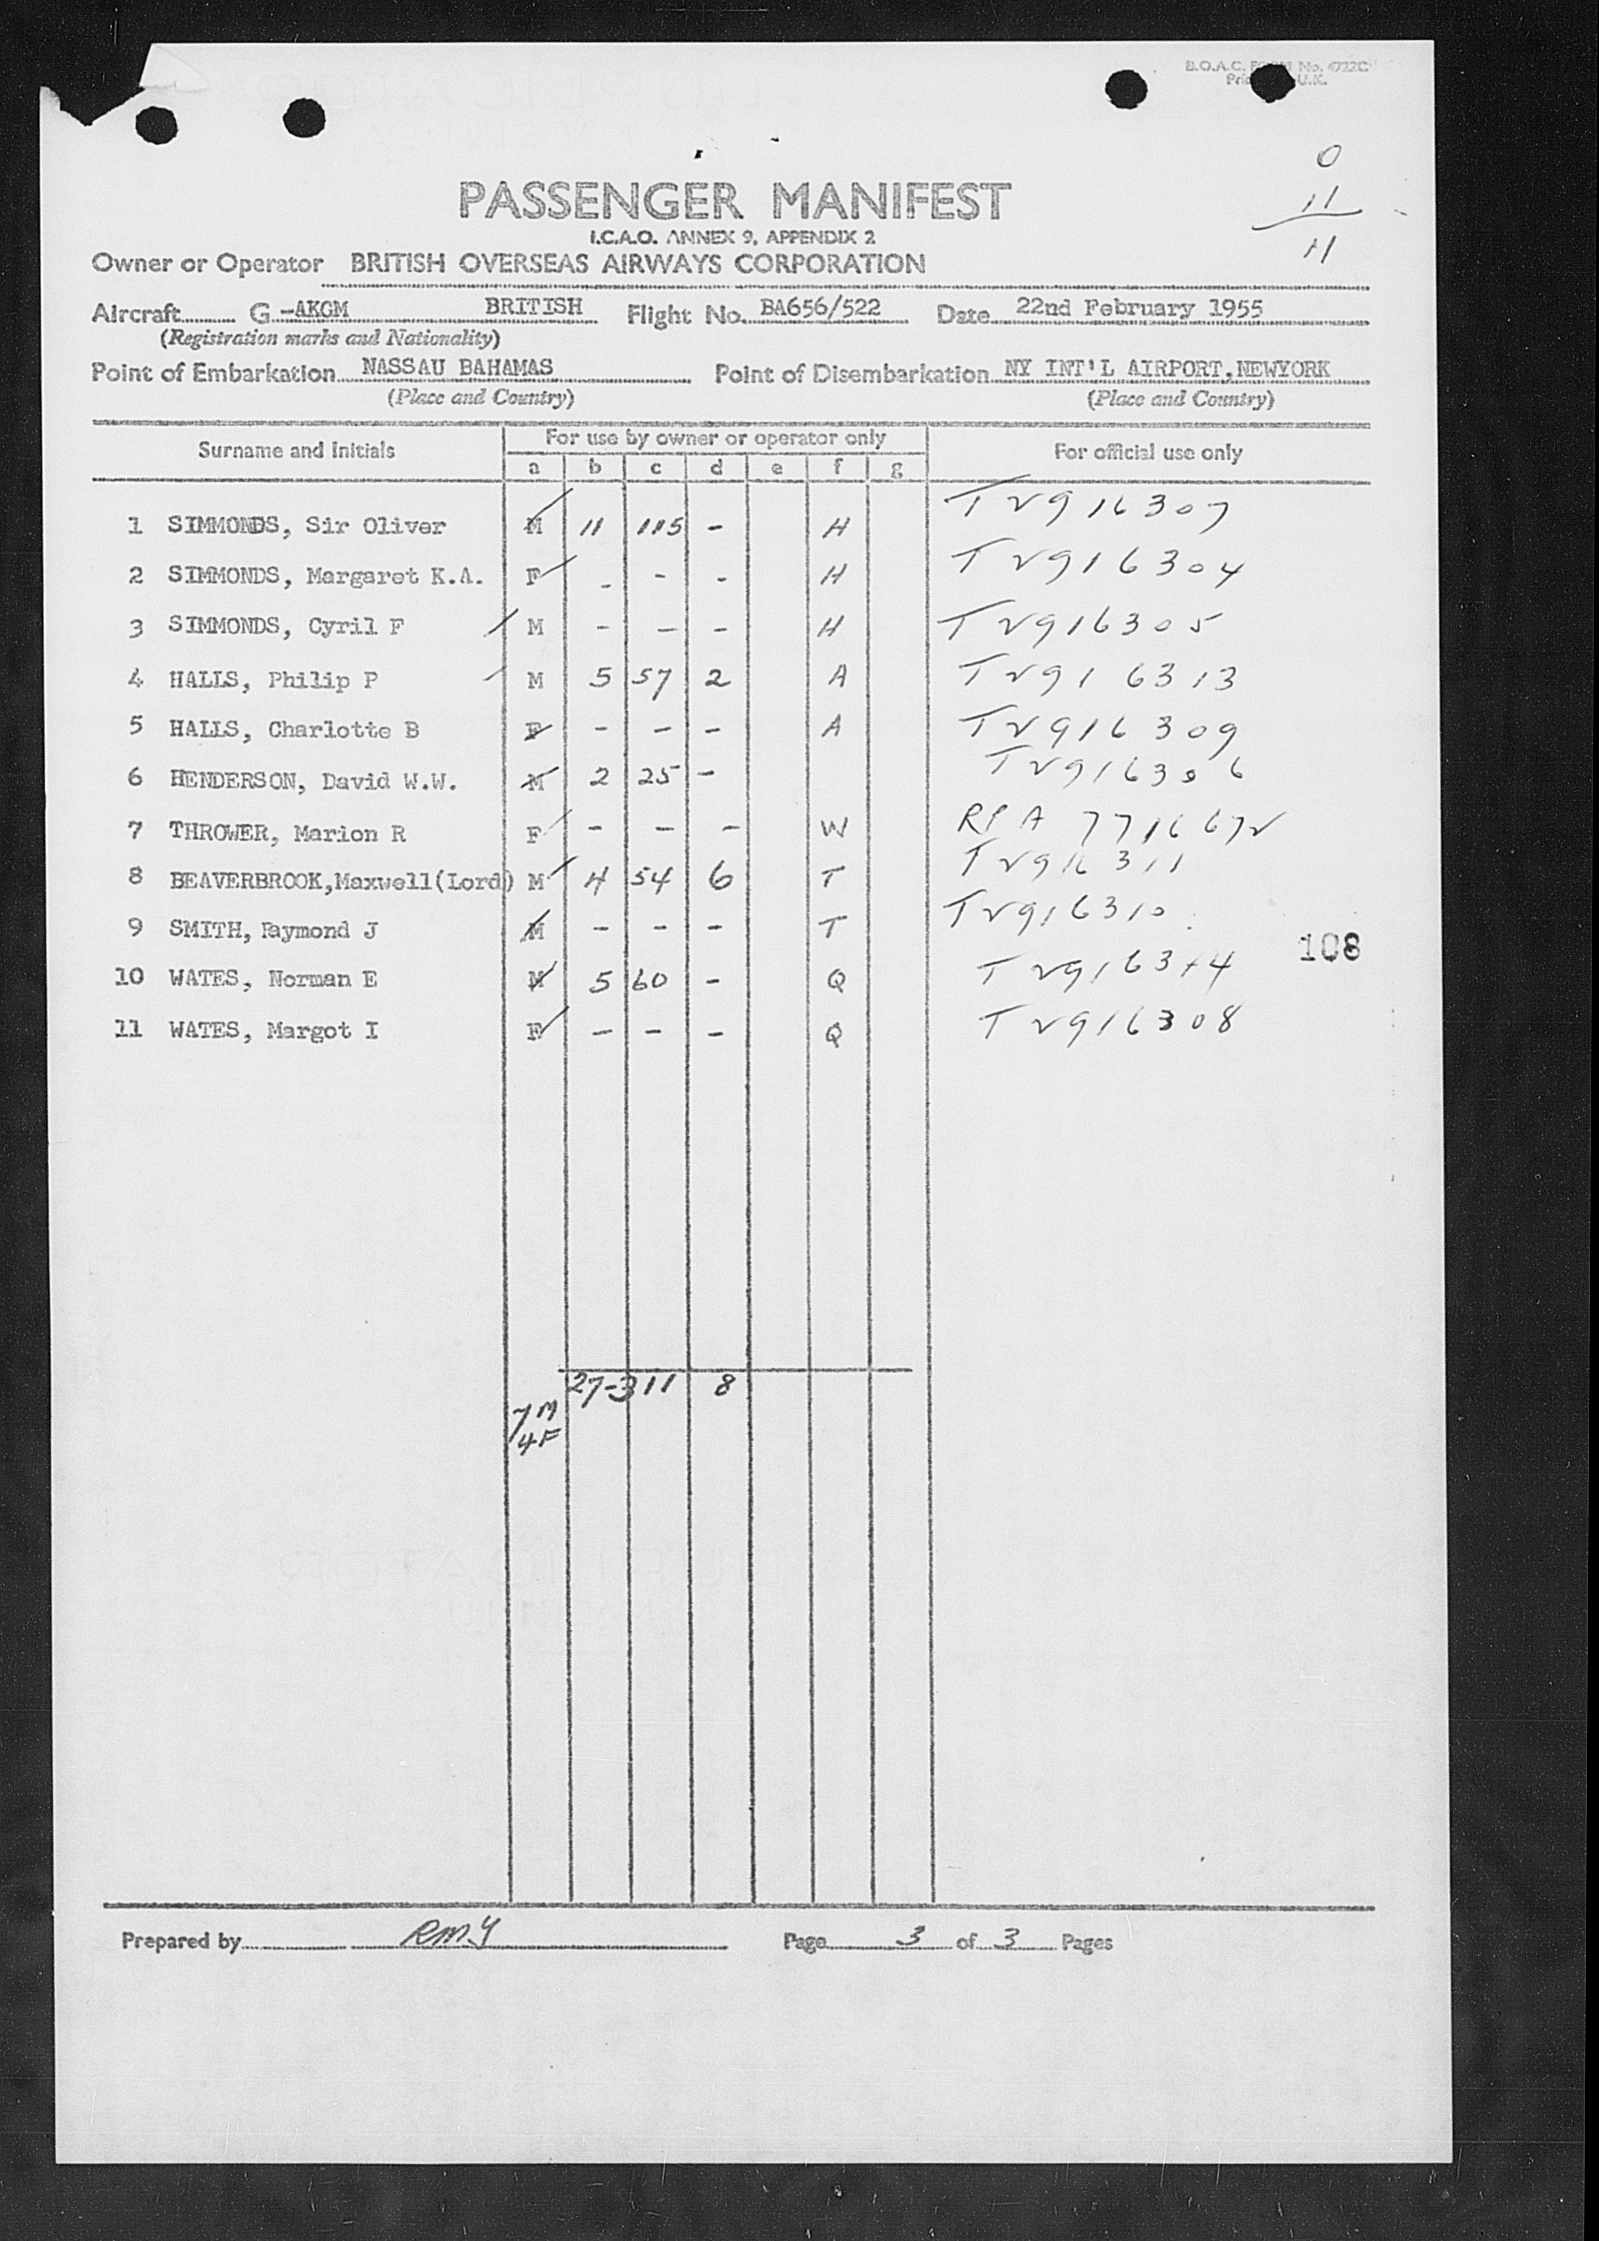 B.O.A.C. FORM No. 4722C
Printed in U.K.
0
11
11
PASSENGER MANIFEST
I.C.A.O. ANNEX 9, APPENDIX 2
Owner or Operator BRITISH OVERSEAS AIRWAYS CORPORATION
Aircraft G-AKGM BRITISH Flight No. BA656/522 Date 22nd February 1955
(Registration marks and Nationality)
Point of Embarkation NASSAU BAHAMAS Point of Disembarkation NY INT'L AIRPORT, NEWYORK
(Place and Country) (Place and Country)
Surname and Initials For use by owner or operator only For official use only
a b c d e f g
1 SIMMONDS, Sir Oliver M 11 115 - H T2916307
2 SIMMONDS, Margaret K.A. F - - - H T2916304
3 SIMMONDS, Cyril F M - - - H T2916305
4 HALLS, Philip P M 5 57 2 A T2916313
5 HALLS, Charlotte B F - - - A T2916309
6 HENDERSON, David W.W. M 2 25 - T2916306
7 THROWER, Marion R F - - - W 7716672
8 BEAVERBROOK,Maxwell(Lord) M 4 54 6 T T2916311
9 SMITH, Raymond J M - - - T T2916310
108
10 WATES, Norman E M 5 60 - Q T2916314
11 WATES, Margot I F - - - Q T2916308
27-311 8
7M
4F
Prepared by RMY Page 3 of 3 Pages